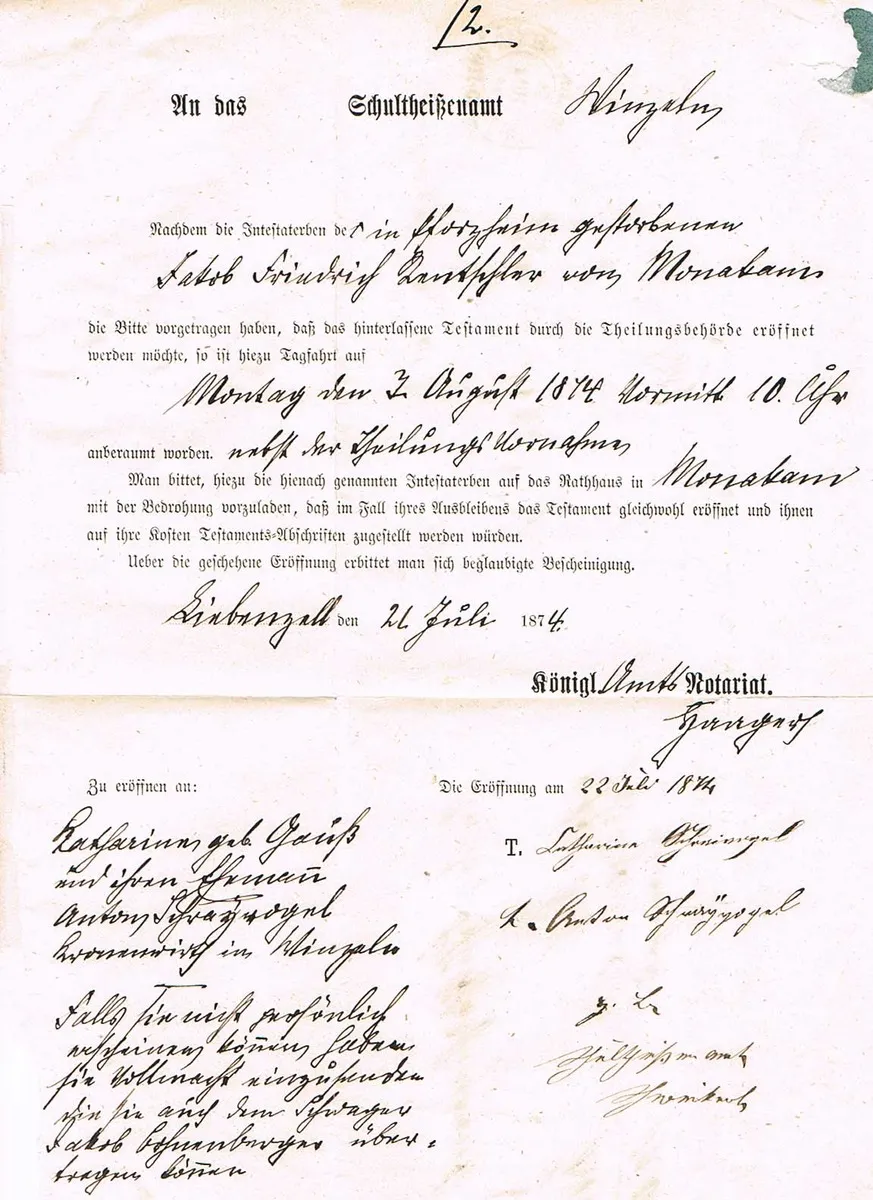 12.
An das Schultheißenamt Winzeln
Nachdem die Intestaterben des in Pforzheim gestorbenen
Jakob Friedrich Rentschler von Monakam
die Bitte vorgetragen haben, daß das hinterlassene Testament durch die Theilungsbehörde eröffnet
werden möchte, so ist hiezu Tagfahrt auf
Montag den 3. August 1874 Vormitt. 10. Uhr
anberaumt worden. nebst der Theilungs Vornahme
Man bittet, hiezu die hienach genannten Intestaterben auf das Rathhaus in Monakam
mit der Bedrohung vorzuladen, daß im Fall ihres Ausbleibens das Testament gleichwohl eröffnet und ihnen
auf ihre Kosten Testaments-Abschriften zugestellt werden würden.
Ueber die geschehene Eröffnung erbittet man sich beglaubigte Bescheinigung.
Liebenzell den 21 Juli 1874.
Königl. Amts Notariat.
Zu eröffnen an:
Katharine, geb. Gauß
und ihren Ehemann
Anton Schrayvogel
Kronenwirth in Winzeln
Falls sie nicht persönlich
erscheinen können, haben
sie Vollmacht einzusenden
die sie auch dem Schwager
Jakob Bohnenberger über-
tragen können
Die Eröffnung am 22 Juli 1874
T. Catharina Schreivogel
t. Anton Schrayvogel
z. B.
Schultheißenamt